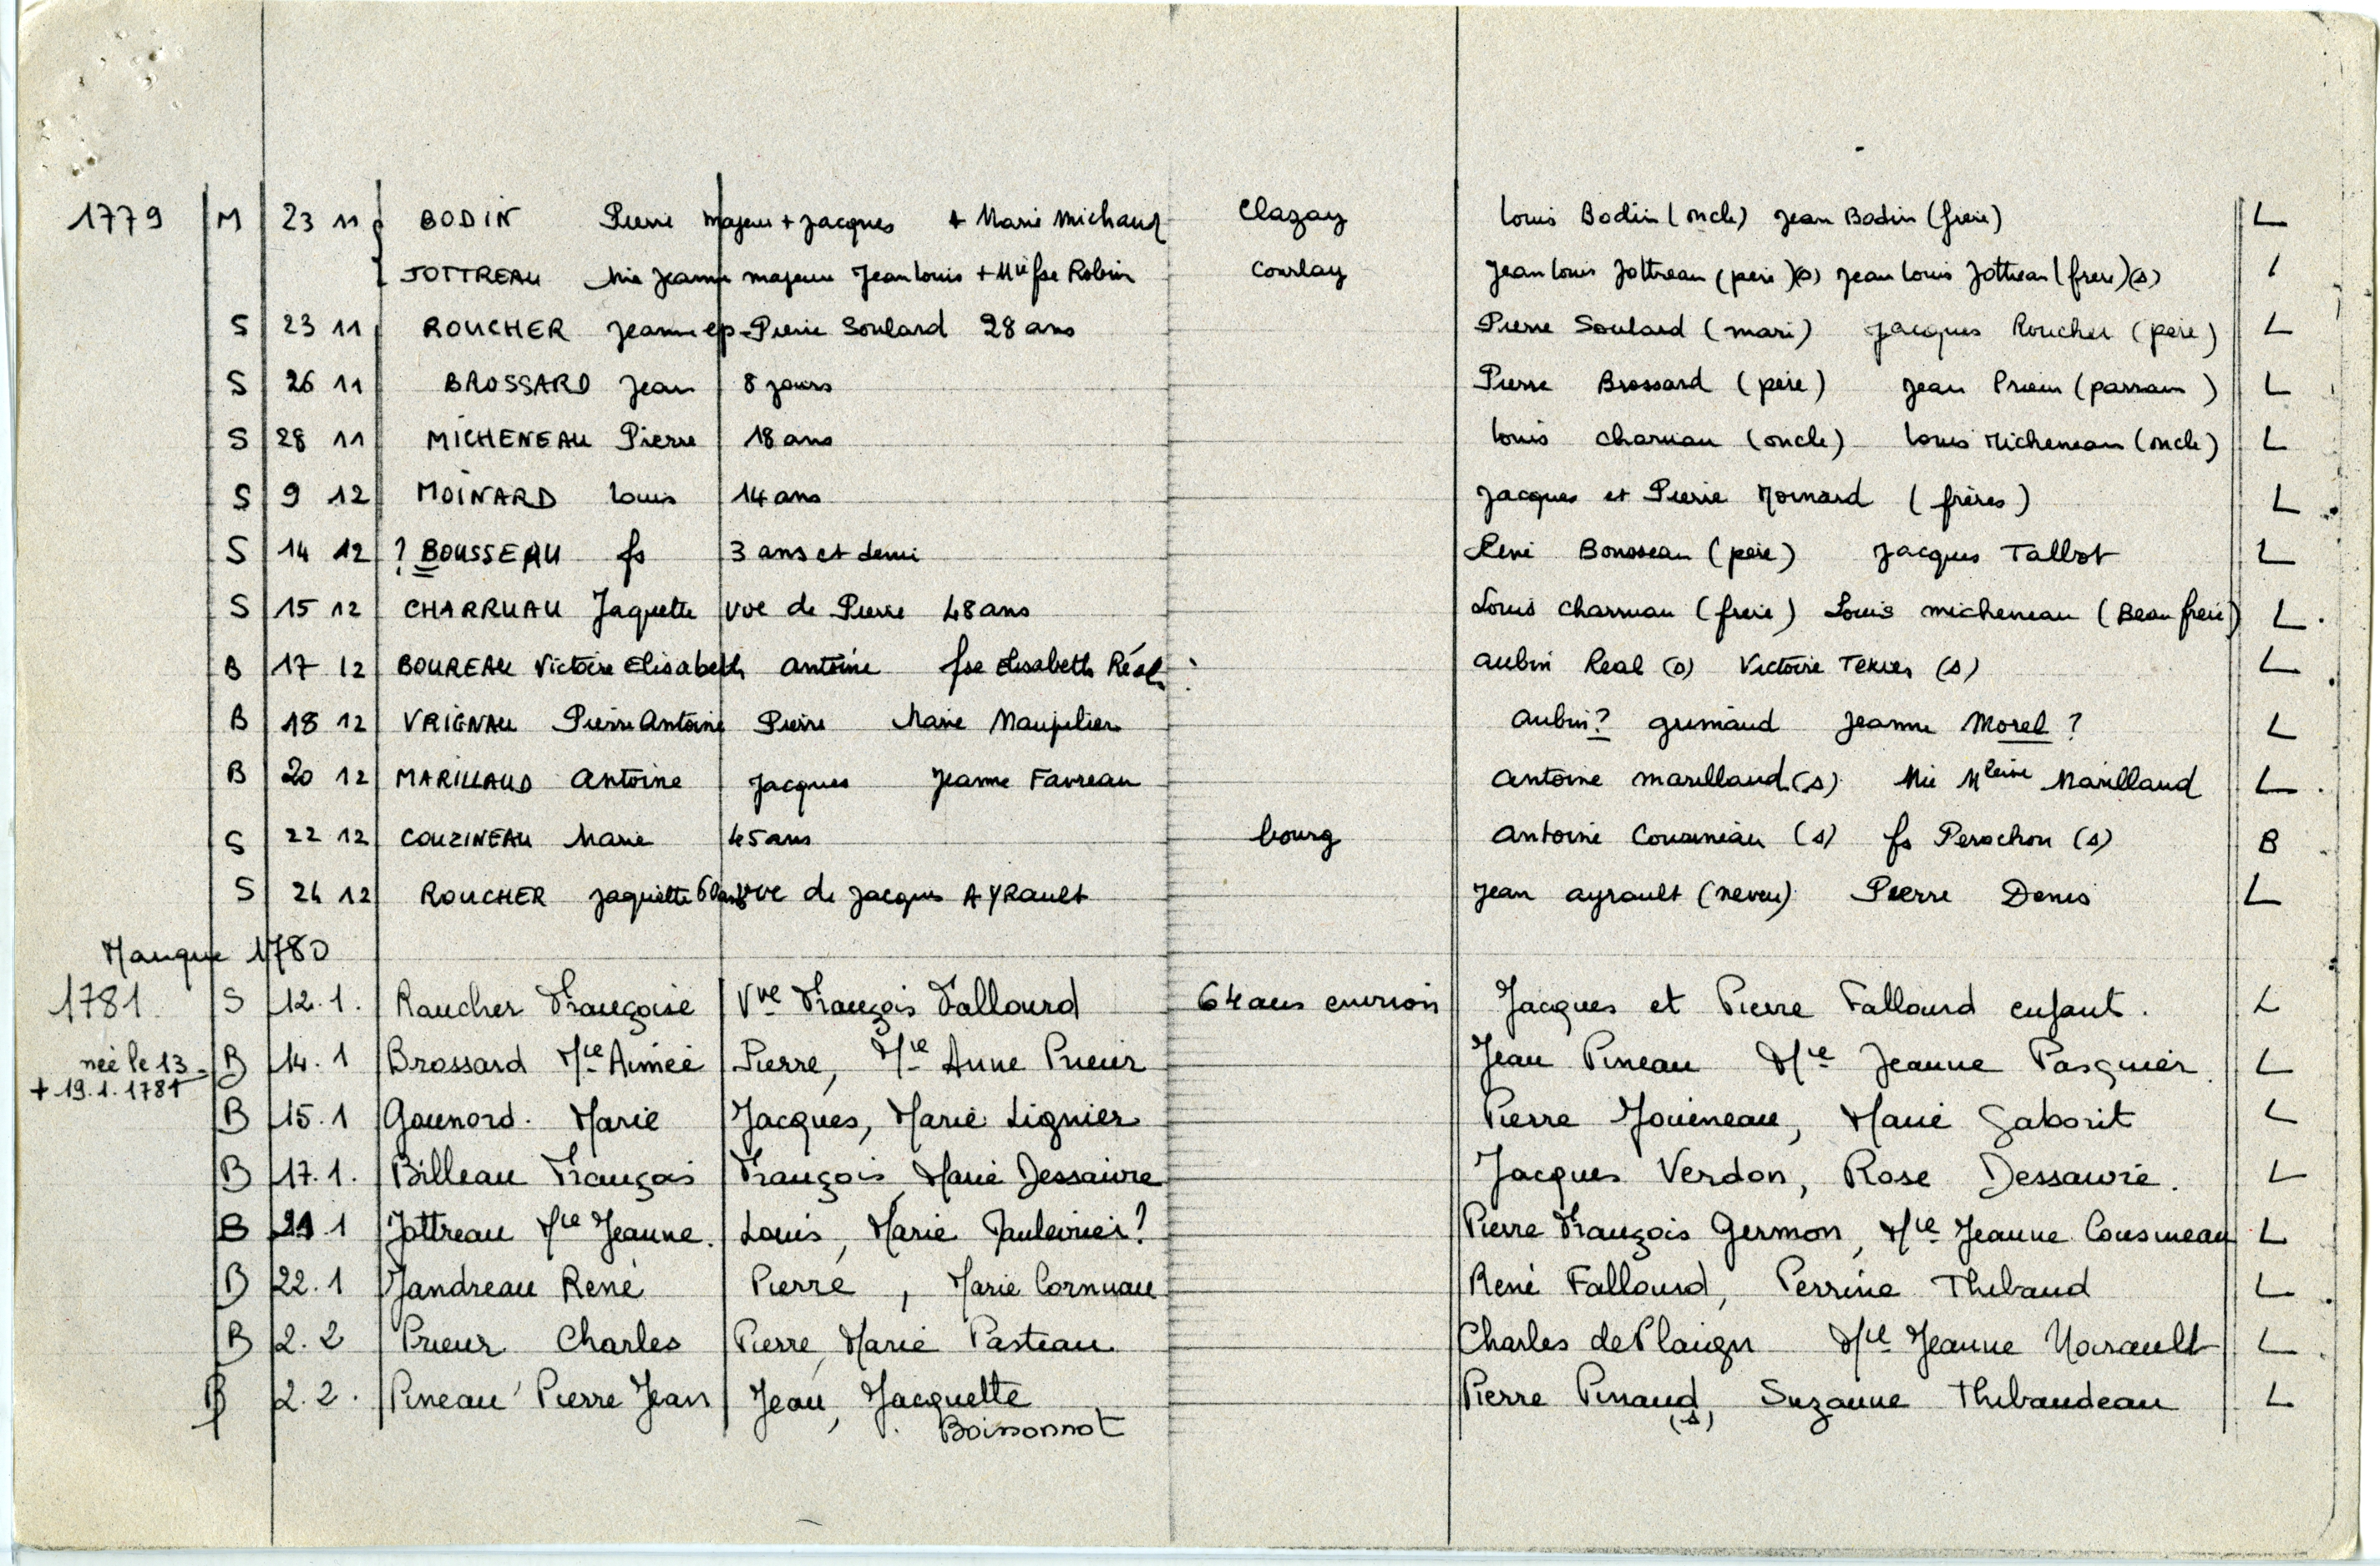 1779 M 23 11 BODIN Pierre majeur + Jacques + Marie Michaud Clazay Louis Bodin (oncle) Jean Bodin (frere) L
JOTTREAU Mie Jeanne majeure Jean Louis + Mie fse Robin Courlay Jean Louis Jottreau (pere)(s) Jean Louis Jottreau (frere)(s)
S 23 11 ROUCHER Jeanne ep Pierre Soulard 28 ans Pierre Soulard (mari) Jacques Roucher (père) L
S 26 11 BROSSARD Jean 8 jours Pierre Brossard (père) Jean Prieur (parrain) L
S 28 11 MICHENEAU Pierre 18 ans Louis Charuau (oncle) Louis Micheneau (oncle) L
S 9 12 MOINARD Louis 14 ans Jacques et Pierre Moinard (frères) L
S 14 12 ? BOUSSEAU fs 3 ans et demi René Bousseau (père) Jacques Tallbot L
S 15 12 CHARRUAU Jaquette vve de Pierre 48 ans Louis Charruau (frere) Louis micheneau (Beau frere) L
B 17 12 BOUREAU Victoire Elisabeth Antoine fse Elisabeth Réal Aubin Real (s) Victoire Texier (s) L
B 18 12 VRIGNAU Pierre Antoine Pierre Marie Maupilier Aubin? grimaud Jeanne Morel ? L
B 20 12 MARILLAUD Antoine Jacques Jeanne Favreau Antoine marillaud (s) Mie Mleine Marillaud L
S 22 12 COUZINEAU Marie 45 ans bourg Antoine Cousineau (s) fs Perochon (s) B
S 24 12 ROUCHER Jaquette 60 ans vve de Jacques AYRault Jean ayrault (neveu) Pierre Denis L
Manque 1780
1781 S 12.1. Raucher Françoise Vve François Fallourd 64 ans environ Jacques et Pierre Fallourd enfant. L
née le 13 B 14.1 Brossard Mie Aimée Pierre, Mie Anne Prieur Jean Pineau Mie Jeanne Pasquier L
+ 19.1.1781
B 15.1 Gounord. Marie Jacques, Marie Lignier Pierre Jouineau, Marie Gaborit L
B 17.1. Billeau François François, Marie Dessaivre Jacques Verdon, Rose Dessaivre. L
B 21 1 Jottreau Mie Jeanne. Louis, Marie Paulevrier? Pierre François Germon, Mie Jeanne Cousineau L
B 22.1 Jandreau René Pierre, Marie Cornuau René Fallourd, Perrine Thibaud L
B 2.2 Prieur Charles Pierre, Marie Pasteau Charles de Plaign Mie Jeanne L
B 2.2. Pineau Pierre Jean Jean, Jacquette Pierre Pinaud (s), Suzanne Thibaudeau L
Boissonnot